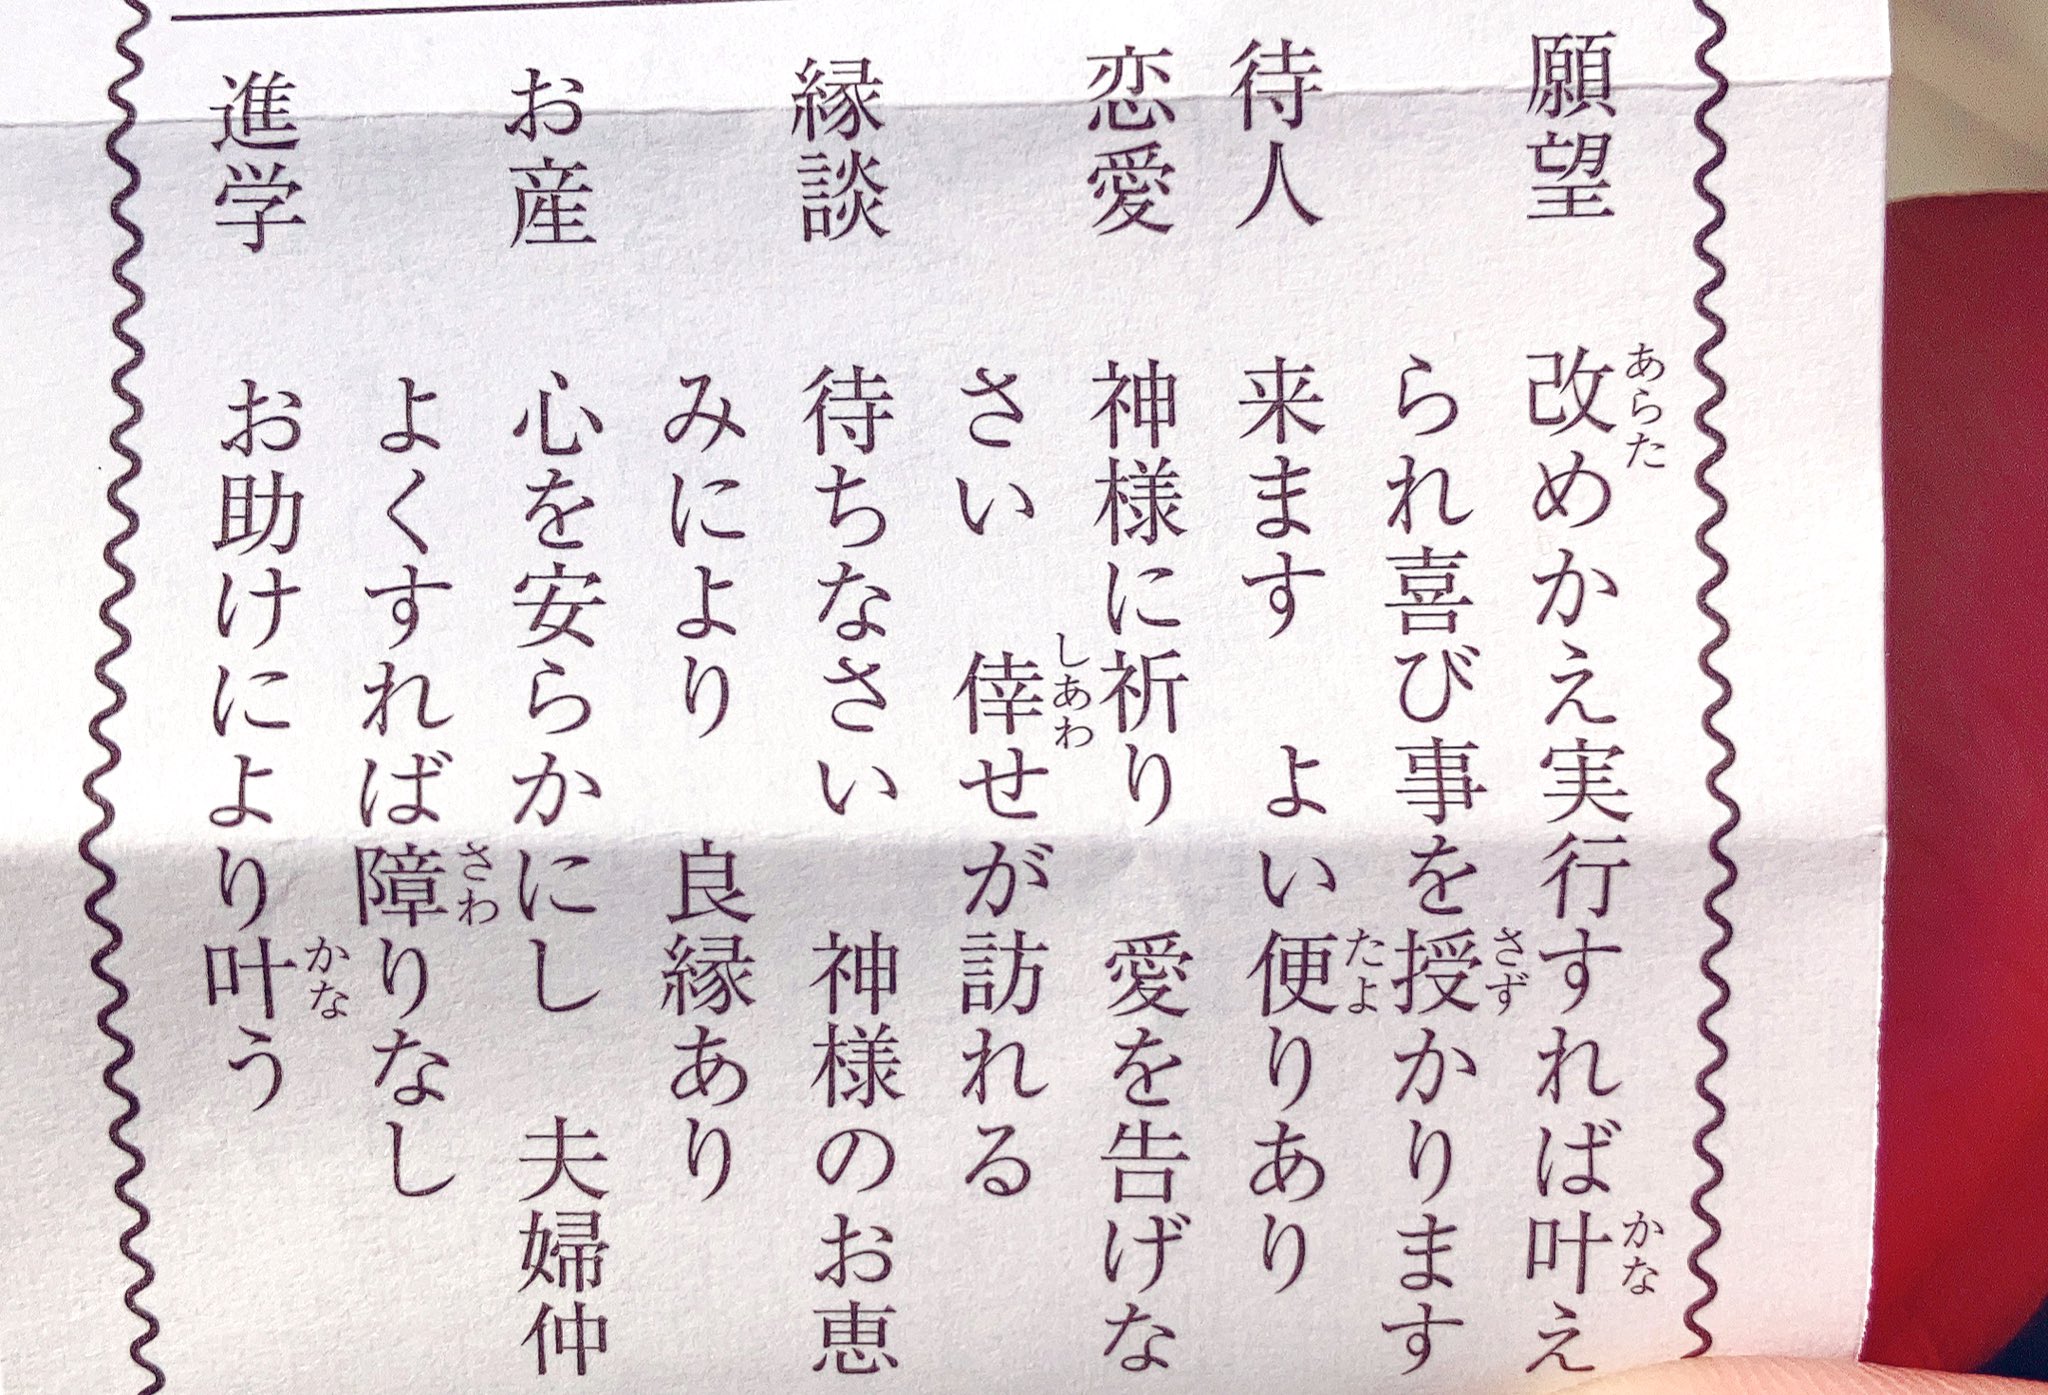 願望 改めかえ実行すれば叶え
られ喜び事を授かります
待人 来ます よい便りあり
恋愛 神様に祈り 愛を告げな
さい 倖せが訪れる
縁談 待ちなさい 神様のお恵
みにより 良縁あり
お産 心を安らかにし 夫婦仲
よくすれば障りなし
進学 お助けにより叶う
あらた
かな
さず
たよ
しあわ
さわ
かな